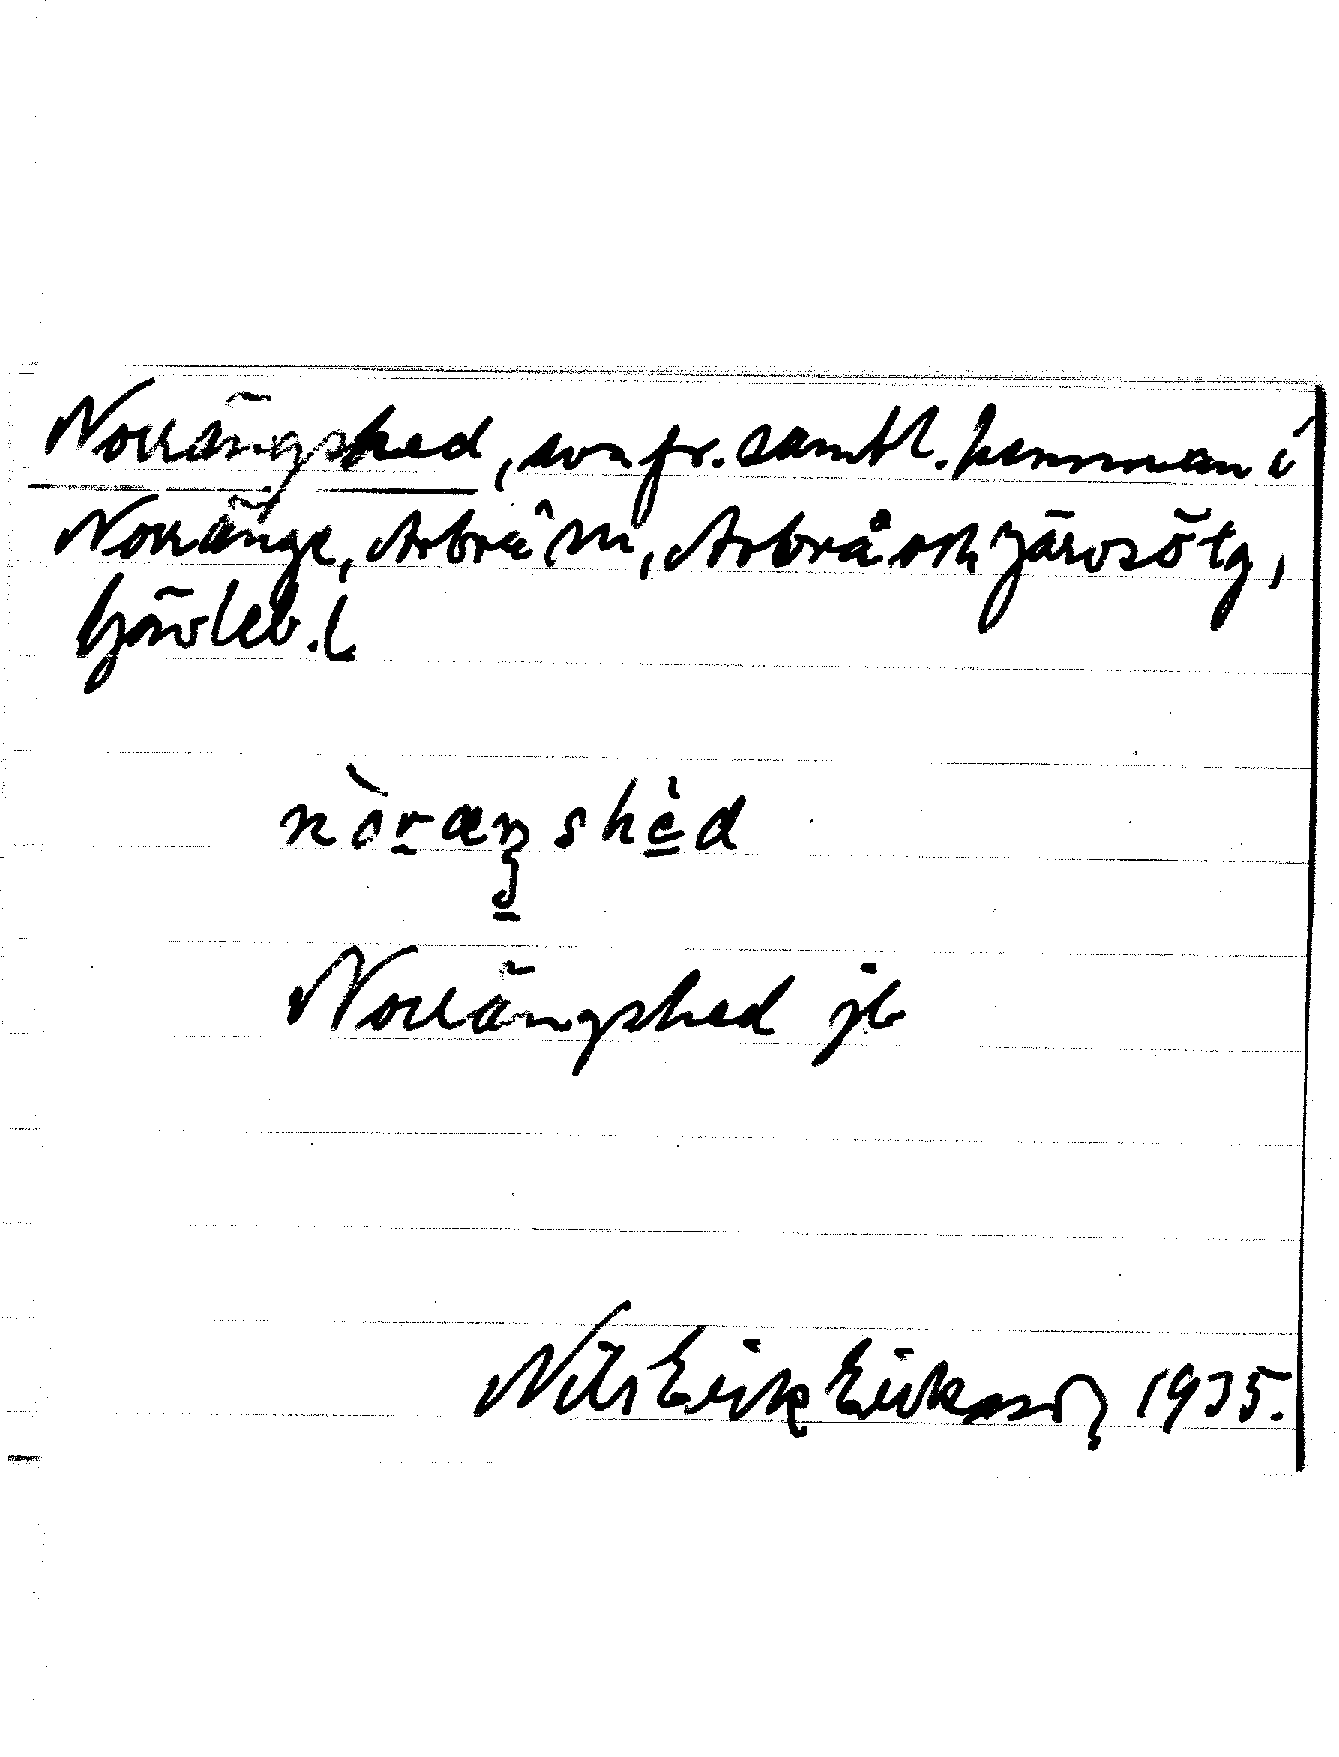 Norrängshed, svn fr. samtl. hemman i
Norränge, Arbrå sn, Arbrå och Järvsö tg,
Gävleb. l.
nòræŋshèd
Norrängshed jb
Nils Erik Eriksson 1935.